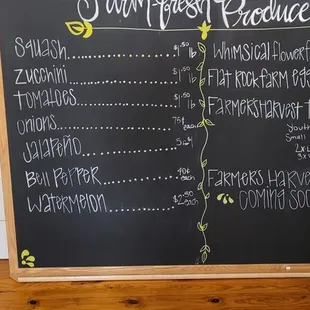 Farm fresh Produce
Squash $1.50 lb
Zucchini $1.50 lb
Tomatoes $1.50 lb
Onions 75¢ each
Jalapeño
Bell Pepper 40¢ each
Watermelon each
Whimsical
Flat rock farm egg
Farmers Harvest
Yout
Small
2x
3x
Farmers Harve
Coming Soo